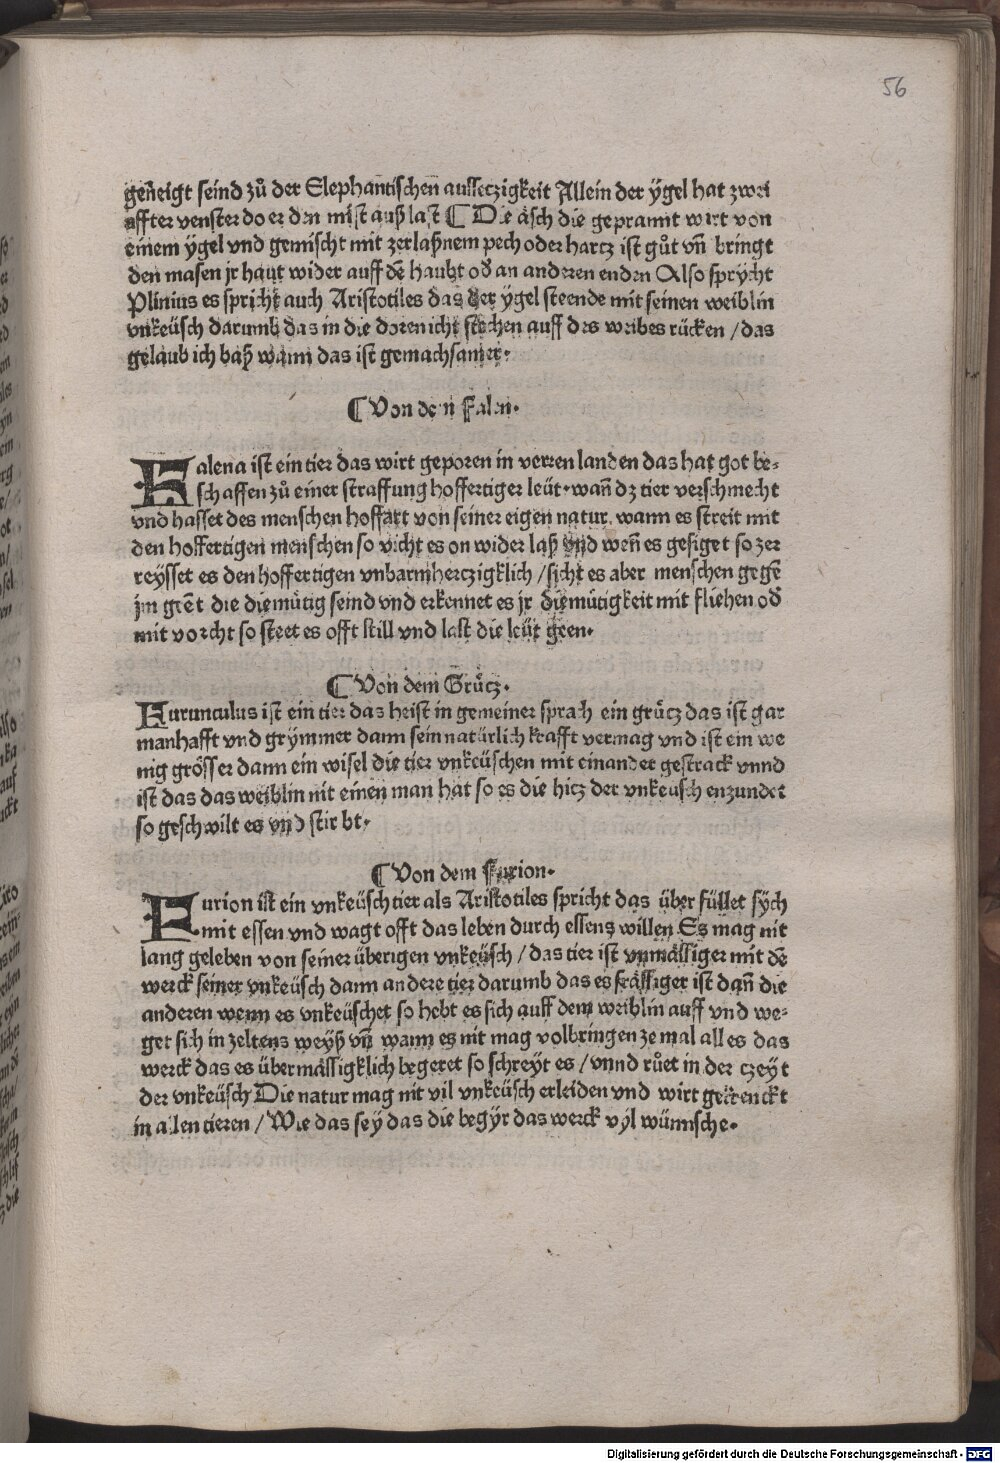 56
geñeigt seind zů der Elephantischen ausseczigkeit Allein der ygel hat zwei
affter venster do er den mist auß last ¶ Die äsch die geprannt wirt von
einem ygel vnd gemischt mit zerlaßnem pech oder hartz ist gůt vñ bringt
den masen jr haut wider auff dē haubt oď an anderen enden Also sprycht
Plinius es spricht auch Aristotiles das der ygel steende mit seinen weiblin
vnkeüsch darumb das in die doren icht stechen auff des weibes rücken / das
gelaub ich baß wann das ist gemachsamer.
¶ Von dem Falen.
Falena ist ein tier das wirt geporen in verren landen das hat got be⸗
schaffen zů einer straffung hoffertiger leüt. wañ dz tier verschmecht
vnd hasset des menschen hoffart von seiner eigen natur. wann es streit mit
den hoffertigen menschen so vicht es on wider laß vnd weñ es gesiget so zer
reysset es den hoffertigen vnbarmherczigklich / sicht es aber menschen gegē
jm geēt die diemütig seind vnd erkennet es jr diemütigkeit mit fliehen oď
mit vorcht so steet es offt still vnd last die leüt geen.
¶ Von dem Grücz.
Furunculus ist ein tier das heist in gemeiner sprach ein grücz das ist gar
manhafft vnd grymmer dann sein natürlich krafft vermag vnd ist ein we
nig grösser dann ein wisel die tier vnkeüschen mit einander gestrack vnnd
ist das das weiblin nit einen man hat so es die hicz der vnkeusch enzundet
so geschwilt es vnd stirbt.
¶ Von dem Furion.
Furion ist ein vnkeüsch tier als Aristotiles spricht das über füllet sych
mit essen vnd wagt offt das leben durch essens willen Es mag nit
lang geleben von seiner überigen vnkeüsch / das tier ist vnmässiger mit dē
werck seiner vnkeüsch dann andere tier darumb das es frässiger ist dañ die
anderen wenn es vnkeüschet so hebt es sich auff dem weiblin auff vnd we⸗
get sich in zeltens weyß vñ wann es nit mag volbringen zemal alles das
werck das es übermässigklich begeret so schreyt es / vnnd růet in der czeyt
der vnkeüsch Die natur mag nit vil vnkeüsch erleiden vnd wirt gekrenckt
in allen tieren / Wie das sey das die begyr das werck vyl wünnsche.
Digitalisierung gefördert durch die Deutsche Forschungsgemeinschaft - DFG